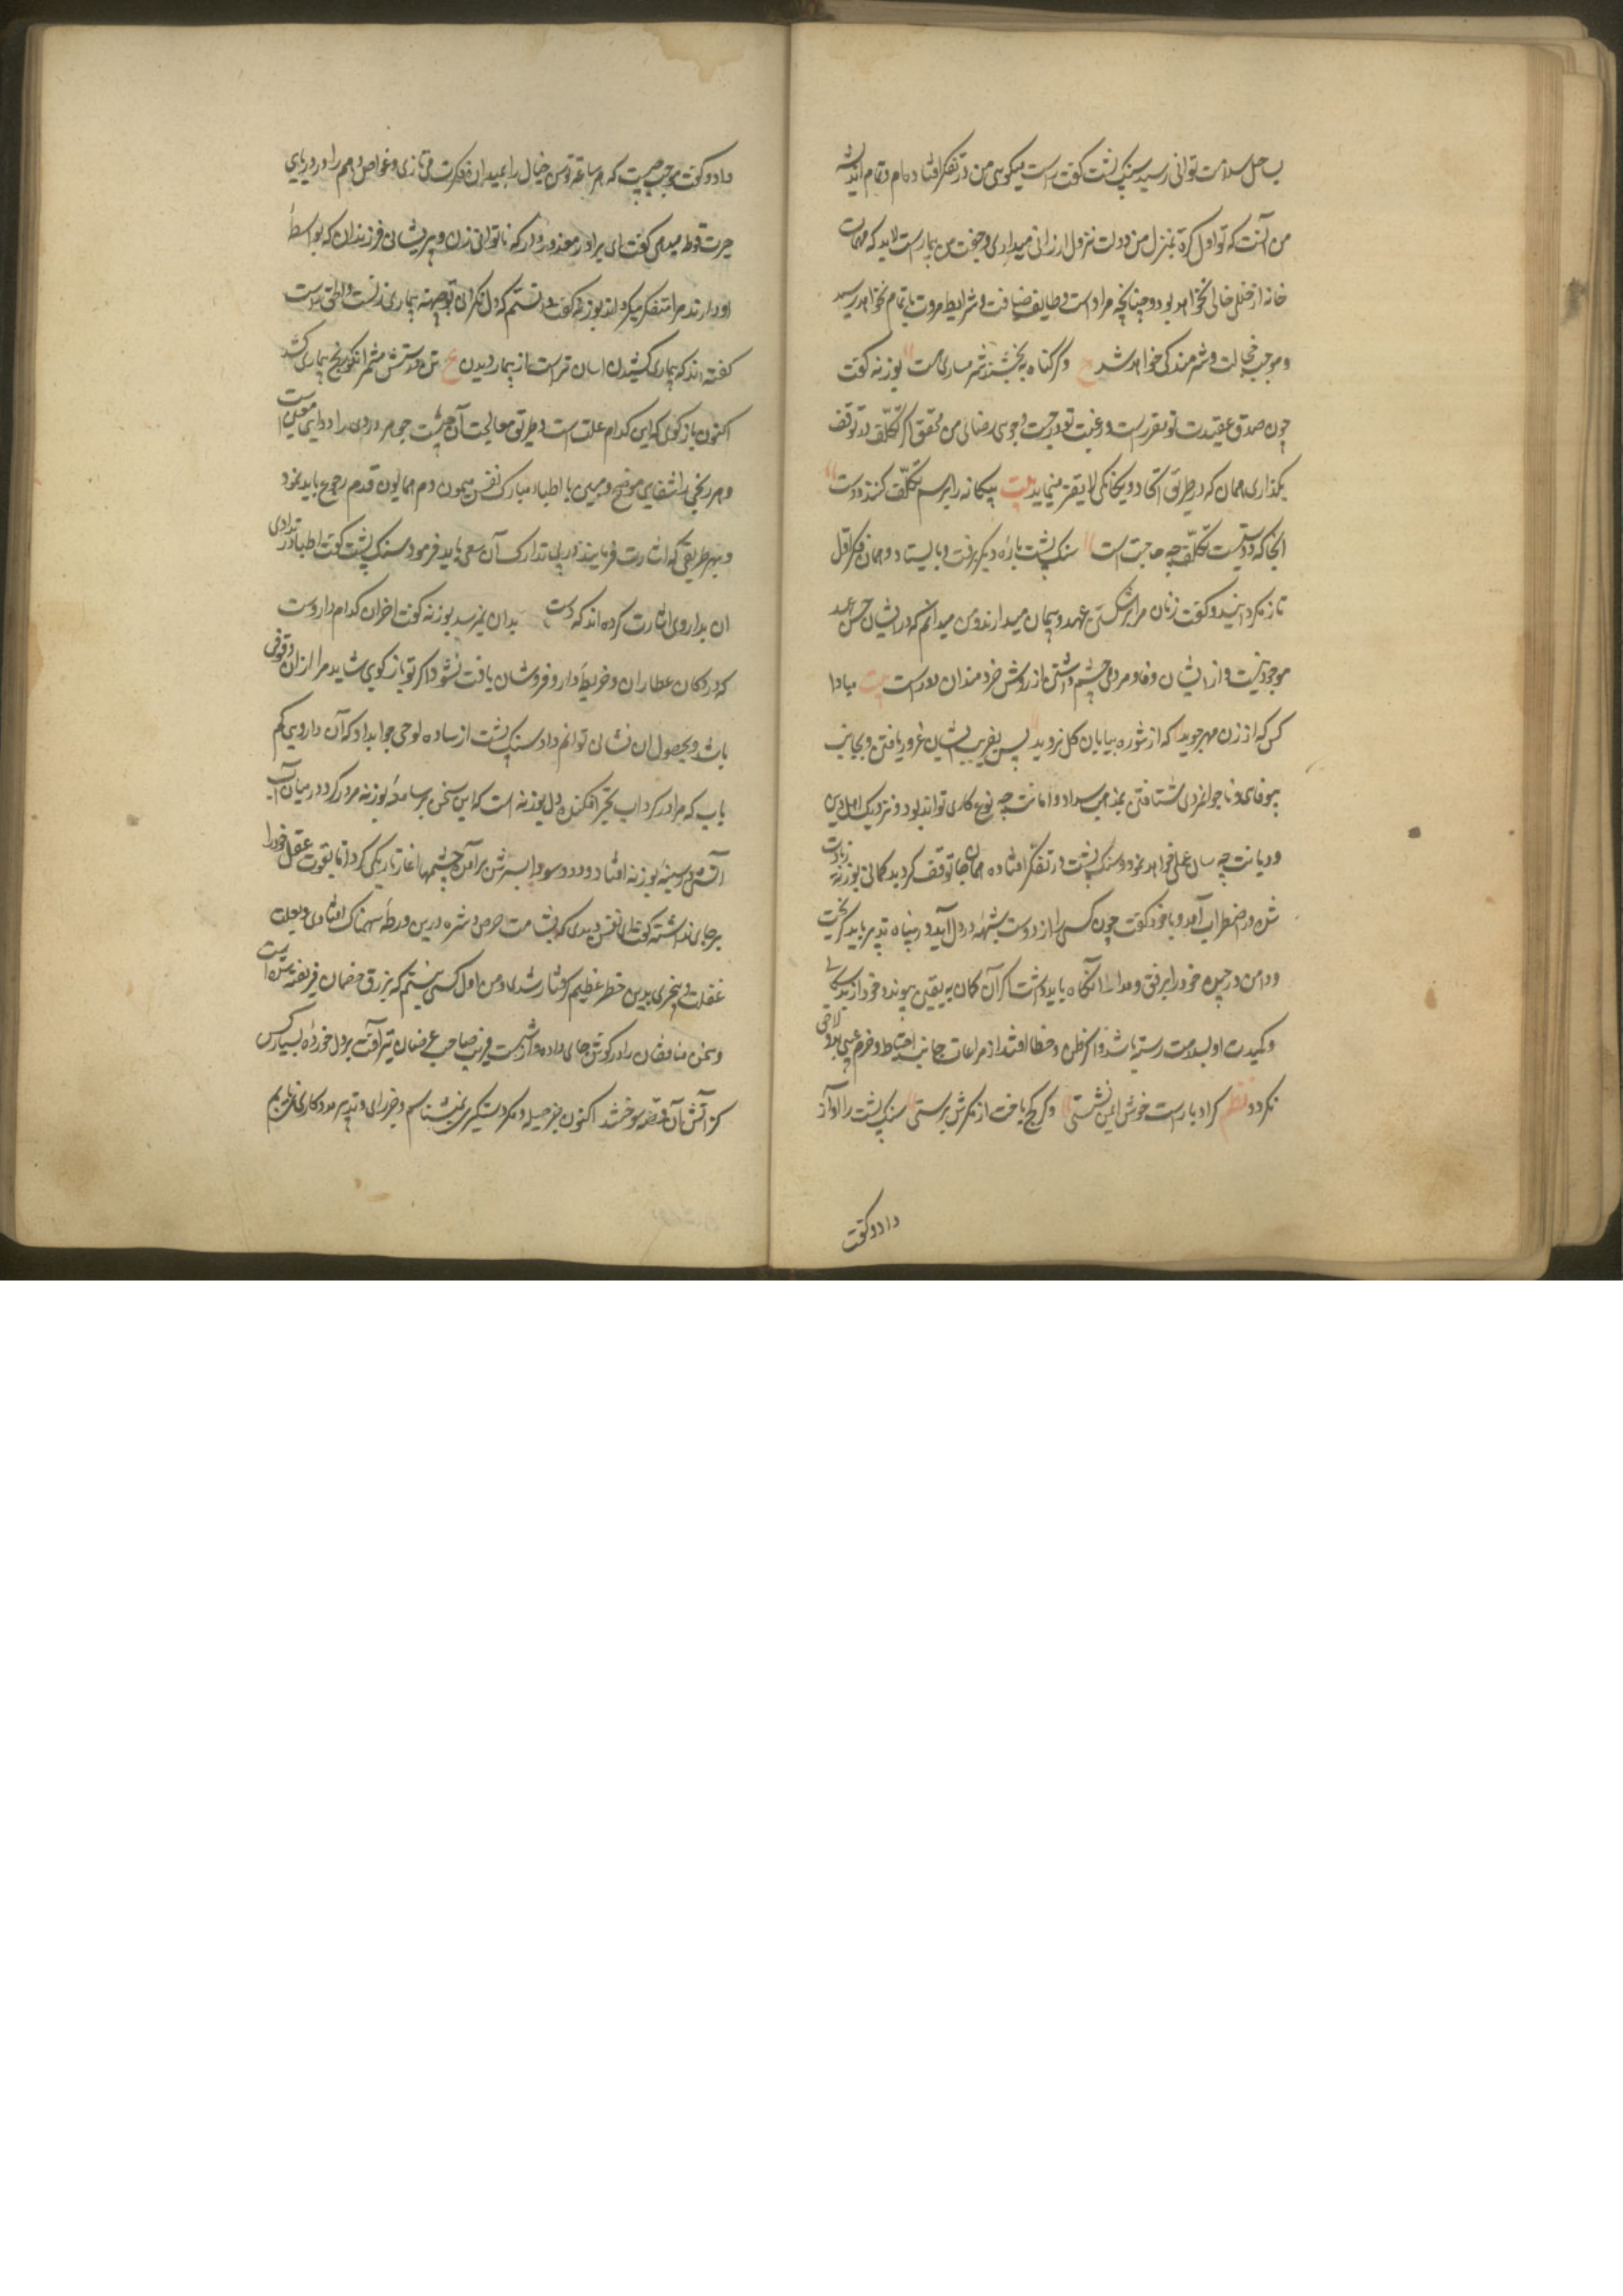 بساحل سلامت توانی رسید سنک پشت کفت راست میکویی من در تفکر افتاده ام و تمام اندیشه
من آنست که تو اول کرة بمنزل من دولت نزول ارزانی میداری و جفت من بیمار است لابد که مهمات
خانه از خللی خالی نخواهد بود و چنانچه مراد است وظایف ضیافت و شرایط مروت باتمام نخواهد رسید
و موجب خجالت و شرمندکی خواهد شد ع وکر کناه ببخشند شرمساری هست بوزنه کفت
چون صدق عقیدت تو مقرر است و رغبت تو در جست و جوی رضای من محقق اکر تکلف در توقف
بکذاری همان که در طریق اتحاد و یکانکی لایقتر مینماید بیت بیکانه را برسم تکلف کنند دوست
آنجا که دوستیست تکلف چه حاجت است سنک پشت پارهٔ دیکر برفت و بایستاد و همان فکر اول
تازه کردانید و کفت زنان مرا بر شکستن عهد و پیمان میدارند و من میدانم که در ایشان حسن عهد
موجود نیست و از ایشان وفا و مردمی چشم داشتن از روش خردمندان دور است بیت مبادا
کس که از زن مهر جوید که از شوره بیابان کل نروید پس بفریب ایشان غرور یافتن و بجانب
بیوفایی و ناجوانمردی شتافتن بمذهب سداد و امانت چه نوع کاری تواند بود و نزدیک اهل دین
و دیانت چه سان عملی خواهد نمود و سنک پشت در تفکر افتاده همان جا توقف کرد بدکمانی بوزنه زیادت
شده در اضطراب آمد و با خود کفت چون کسی را از دوست شبهه در دل آید در پناه تدبیر باید کریخت
و دامن در چیده خود را برفق و مدارا نکاه باید داشت اکر آن کمان به یقین پیوندد خود از بدسکالی
و کیدت او بسلامت رسته باشد و اکر ظن خطا افتد از مراعات جانب احتیاط و حزم عیبی بدو لاحق
نکردد نظم کر او با راست خوش ایمن نشستی وکر کج باخت از مکرش برستی سنک پشت را آواز
داد و کفت
داد و کفت موجب چیست که هر ساعة توسن خیال را بمیدان فکرت می تازی و غواص وهم را در دریای
حیرت غوطه میدهی کفت ای برادر معذور دار که ناتوانی زن و پریشانی فرزندان که بواسطهٔ
او دارند مرا متفکر میکرداند بوزنه کفت دانستم که دل نکرانی تو جهة بیماری زنست و الحق راست
کفته اند که بیماری کشیدن اسان تر است از بیمار دیدن ع
اکنون بازکوی که این کدام علت است و طریق معالجت آن چیست چه هر دردی را دوایی معین است
و هر رنجی را شفایی موضح و مبین با اطباء مبارک نفس میمون دم همایون قدم رجوع باید نمود
و بهر طریقی که اشارت فرمایند در پی تدارک آن سعی باید فرمود سنک پشت کفت اطبا در تداوی
ان بداروی اشارت کرده اند که دست بدان نمیرسد بوزنه کفت اخر ان کدام داروست
که در دکان عطاران و خریطهٔ دارو فروشان یافت نشود اکر تو بازکوی شاید مرا از ان وقوفی
باشد و بحصول ان نشان توانم داد سنک پشت از ساده لوحی جواب داد که آن داروی کم
یاب که مرا در کرداب تحیر افکنده دل بوزنه است که این سخن بر سامعهٔ بوزنه مرور کرد در میان آب
آتش در سینه بوزنه افتاد و دود سودا بسرش برآمد چشمها اغاز تاریکی کرد اما بقوت عقل خود را
بر جای داشته کفت ای نفس دیدی که بشامت حرص و شره درین ورطهٔ سهمناک افتادی و بعلت
غفلت و بیخبری بدین خطر عظیم کرفتار شدی و من اول کسی نیستم که بزرق خصمان فریفته شده است
و سخن منافقان را در کوش جای داده و از شست فریب صاحب غرضان تیر آفت بر دل خورده بسیار کس
کز آتش آن قصه سوختند اکنون جز حیله و مکر دستکیری نمیشناسم و جز رای و تدبیر مددکاری نمی یابم